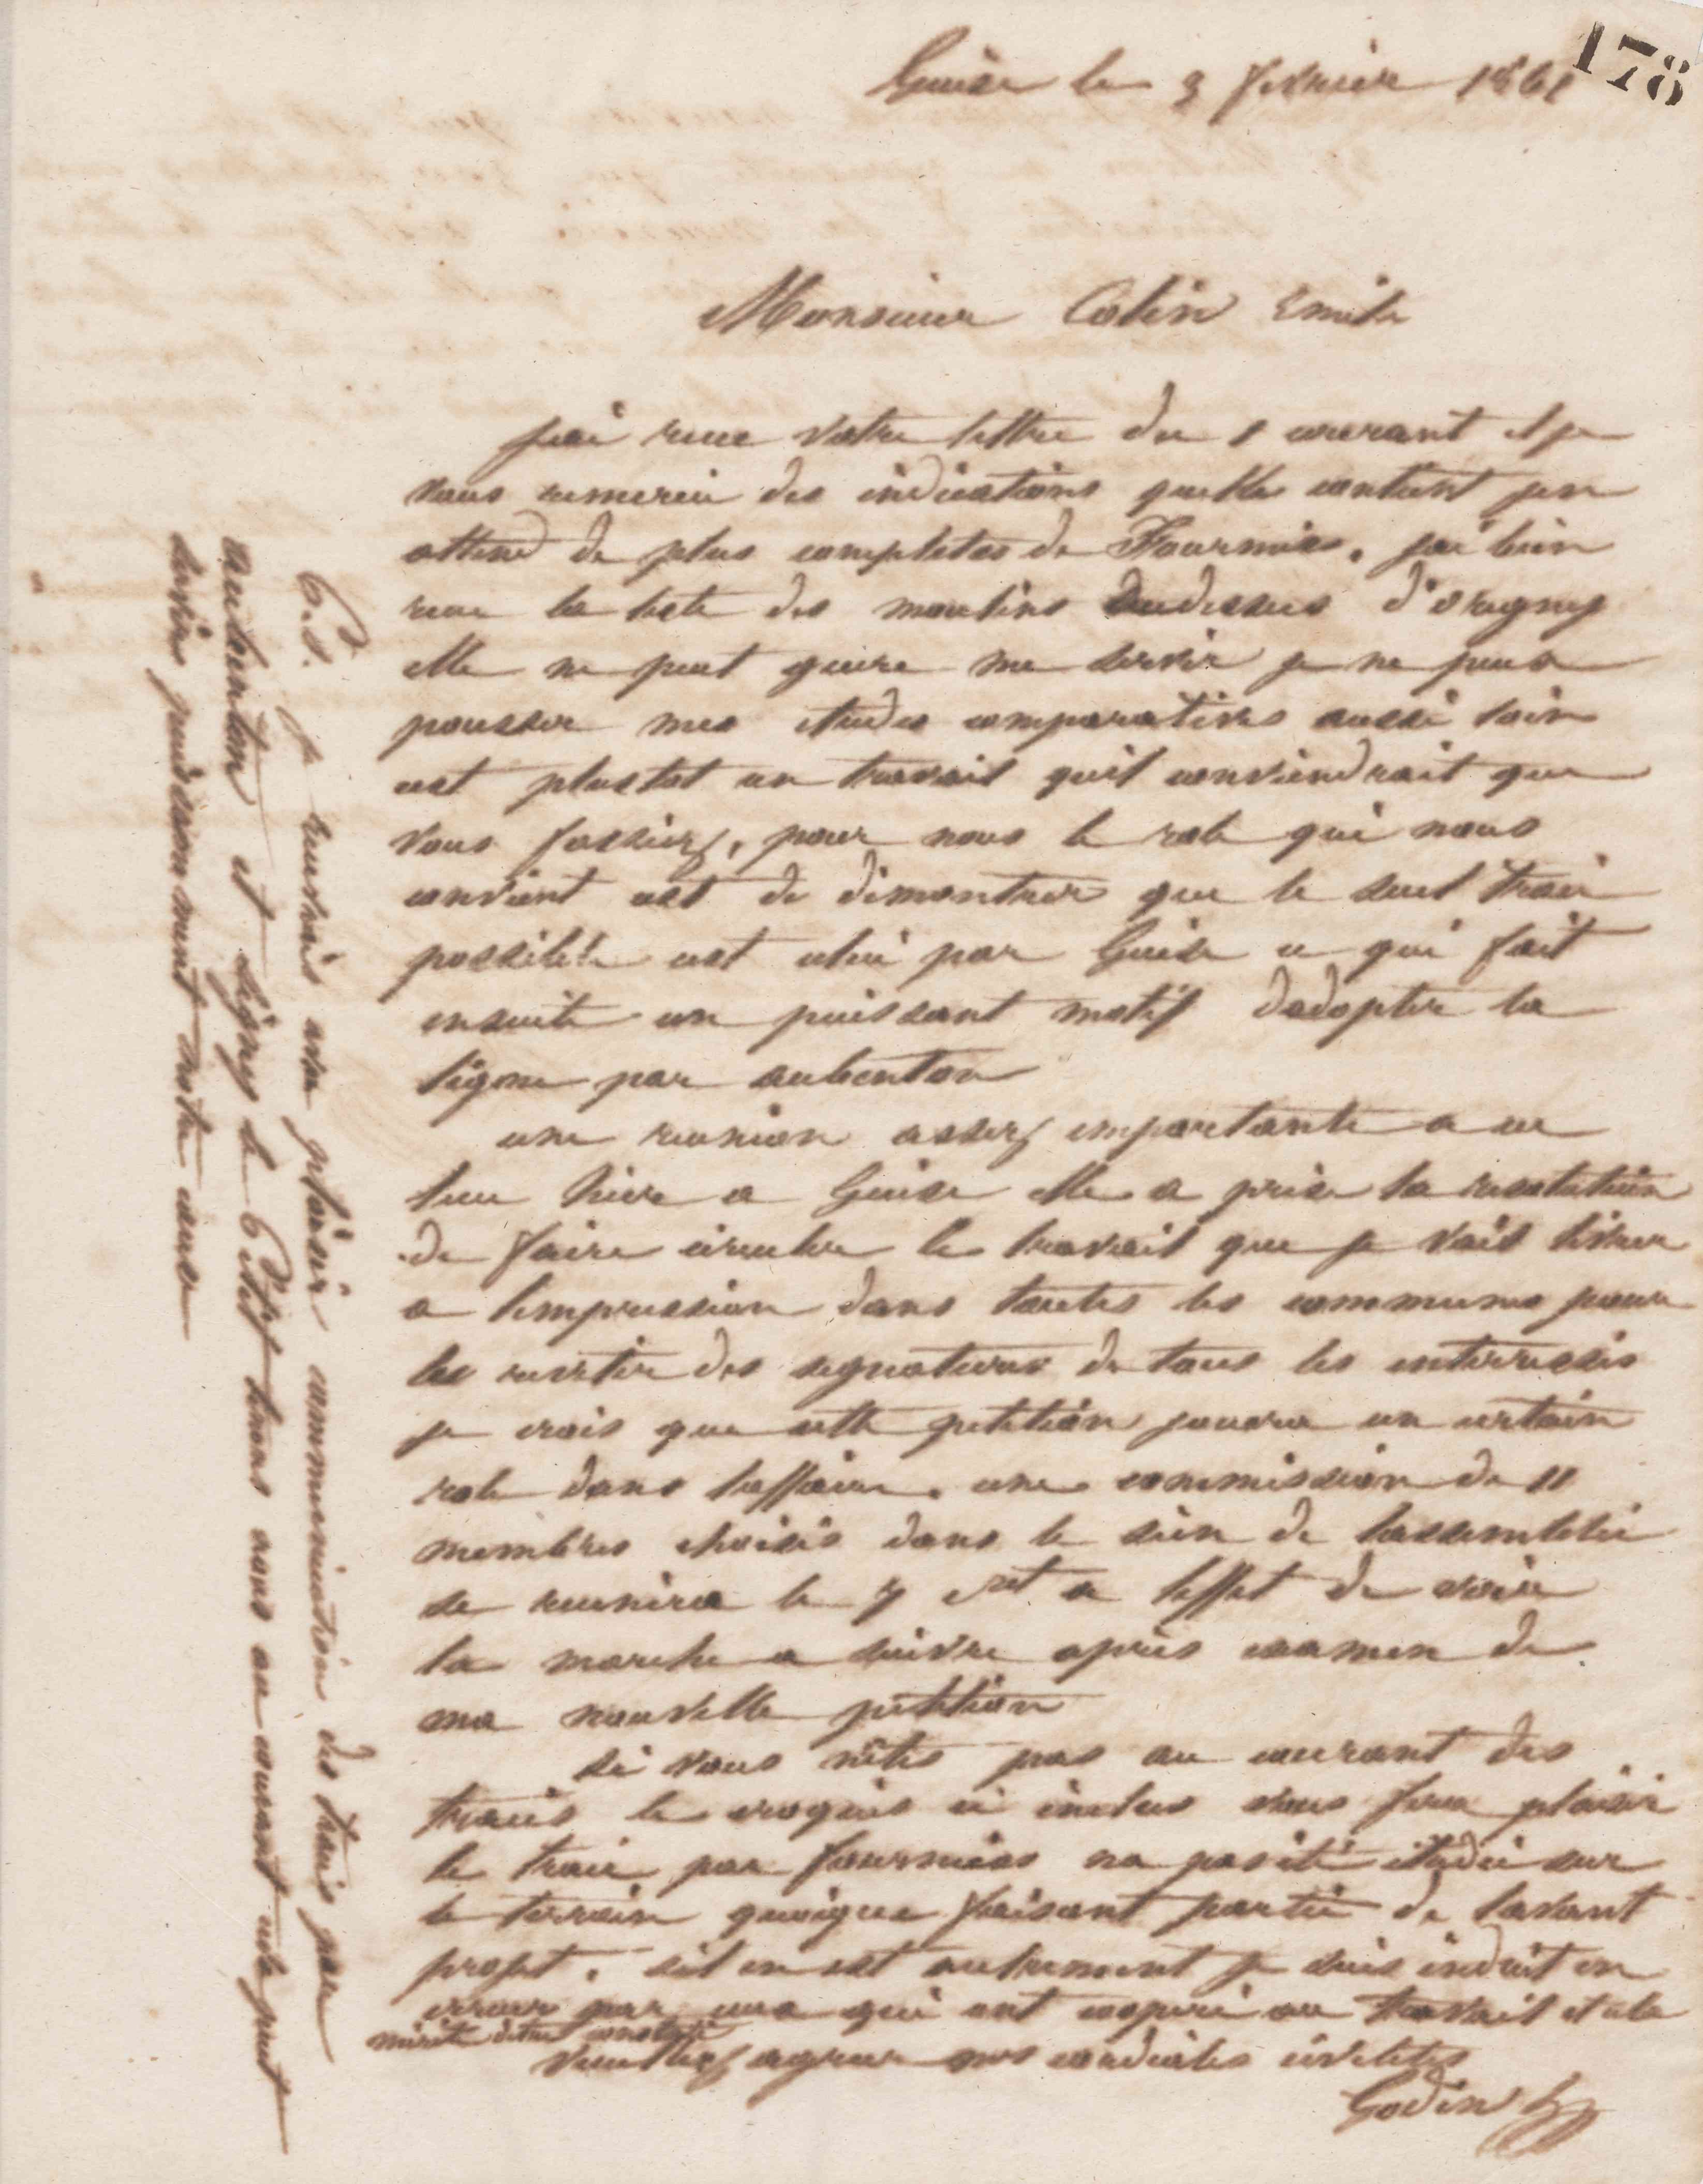 178
Guise le 3 fevrier 1861
Monsieur Colin Emile
jai recue votre lettre du 1 courant et je
vous remercie des indications quelle contient jen
attend de plus completes de Fourmies. jai bien
recue la liste des moulins audessus d'origny
elle ne peut guere me servir je ne peux
pousser mes etudes comparatives aussi loin
cest plustot un travail quil conviendrait que
vous fassiez, pour nous le role qui nous
convient est de démontrer que le seul tracé
possible est celui par Guise ce qui fait
ensuite un puissant motif dadopter la
ligne par aubenton
une reunion assez importante a eu
lieu hier a Guise elle a prise la resolution
de faire circuler le travail que je vais livrer
a limpression dans toutes les communes pour
les revetir des signatures de tous les interressés
je crois que cette petition jouera un certain
role dans laffaire. une commission de 11
membres choisis dans le sein de lassemblée
se reunira le 7 ct a leffet de voir
la marche a suivre après examen de
ma nouvelle petition
si vous nêtes pas au courant des
tracés le croquis ci inclus vous fera plaisir
le tracé par fourmies na pas été étudié sur
le terrain quoique faisant partie de lavant
projet. sil en est autrement je suis induit en
erreur par ceux qui ont coopéré au travail et cela
mérite dêtre constaté
veuillez agreer mes cordiales civilités
Godin
P.S. je recevrais avec plaisir communication des tracés par
aubenton et signy le Petit tenons nous au courant cela peut
servir puissamment notre cause